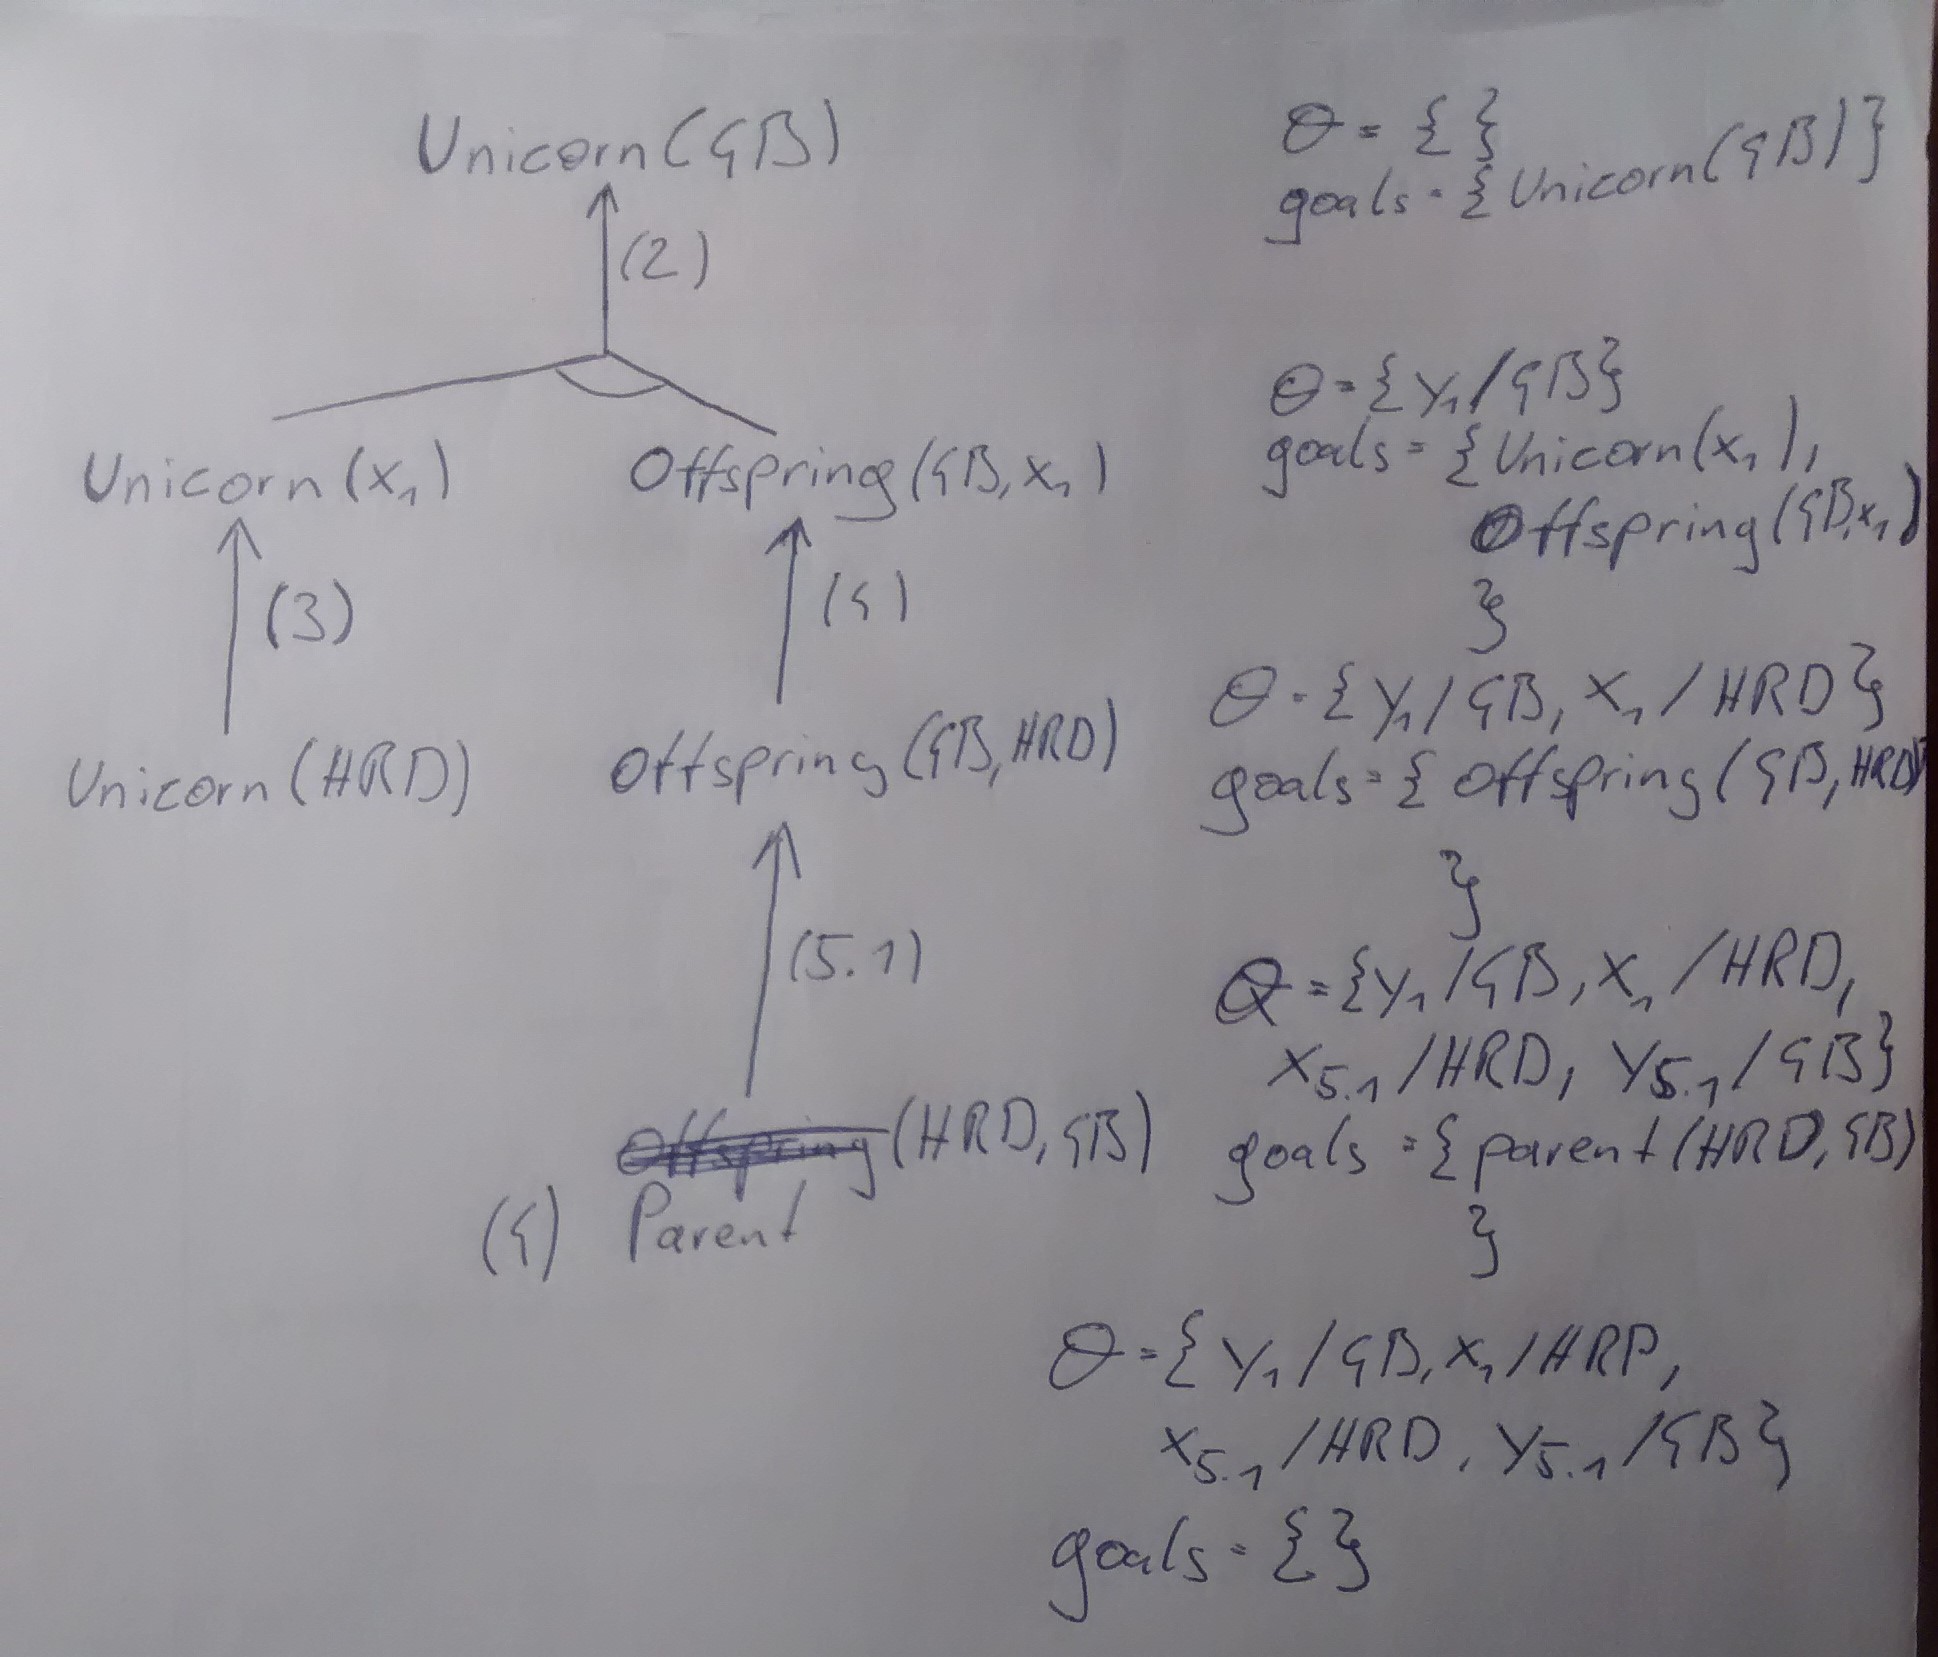 Unicorn(GB)
(2)
Unicorn(x₁) Offspring(GB,x₁)
(3) (4)
Unicorn(HRD) Offspring(GB,HRD)
(5.1)
Offspring (HRD,GB)
(4) Parent
θ={}
goals={Unicorn(GB)}
θ={y₁/GB}
goals={Unicorn(x₁),
Offspring(GB,x₁)
}
θ={y₁/GB,x₁/HRD}
goals={Offspring(GB,HRD)
}
θ={y₁/GB,x₁/HRD,
x5.1/HRD, y5.1/GB}
goals={parent(HRD,GB)
}
θ={y₁/GB,x₁/HRD,
x5.1/HRD, y5.1/GB}
goals={}